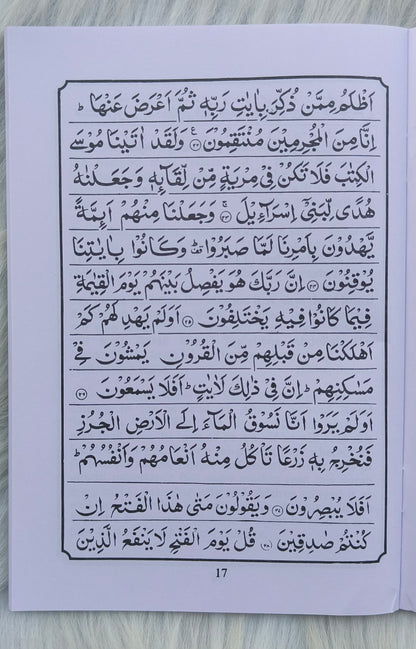 اَظْلَمُ مِمَّنْ ذُكِّرَ بِاٰيٰتِ رَبِّهٖ ثُمَّ اَعْرَضَ عَنْهَا ؕ
اِنَّا مِنَ الْمُجْرِمِيْنَ مُنْتَقِمُوْنَ ﴿۲۲﴾ وَلَقَدْ اٰتَيْنَا مُوْسَى
الْكِتٰبَ فَلَا تَكُنْ فِيْ مِرْيَةٍ مِّنْ لِّقَآئِهٖ وَجَعَلْنٰهُ
هُدًى لِّبَنِيْۤ اِسْرَآءِيْلَ ﴿۲۳﴾ وَجَعَلْنَا مِنْهُمْ اَئِمَّةً
يَّهْدُوْنَ بِاَمْرِنَا لَمَّا صَبَرُوْا ؕ وَكَانُوْا بِاٰيٰتِنَا
يُوْقِنُوْنَ ﴿۲۴﴾ اِنَّ رَبَّكَ هُوَ يَفْصِلُ بَيْنَهُمْ يَوْمَ الْقِيٰمَةِ
فِيْمَا كَانُوْا فِيْهِ يَخْتَلِفُوْنَ ﴿۲۵﴾ اَوَلَمْ يَهْدِ لَهُمْ كَمْ
اَهْلَكْنَا مِنْ قَبْلِهِمْ مِّنَ الْقُرُوْنِ يَمْشُوْنَ فِيْ
مَسٰكِنِهِمْ ؕ اِنَّ فِيْ ذٰلِكَ لَاٰيٰتٍ ؕ اَفَلَا يَسْمَعُوْنَ ﴿۲۶﴾
اَوَلَمْ يَرَوْا اَنَّا نَسُوْقُ الْمَآءَ اِلَى الْاَرْضِ الْجُرُزِ
فَنُخْرِجُ بِهٖ زَرْعًا تَاْكُلُ مِنْهُ اَنْعَامُهُمْ وَاَنْفُسُهُمْ ؕ
اَفَلَا يُبْصِرُوْنَ ﴿۲۷﴾ وَيَقُوْلُوْنَ مَتٰى هٰذَا الْفَتْحُ اِنْ
كُنْتُمْ صٰدِقِيْنَ ﴿۲۸﴾ قُلْ يَوْمَ الْفَتْحِ لَا يَنْفَعُ الَّذِيْنَ
17